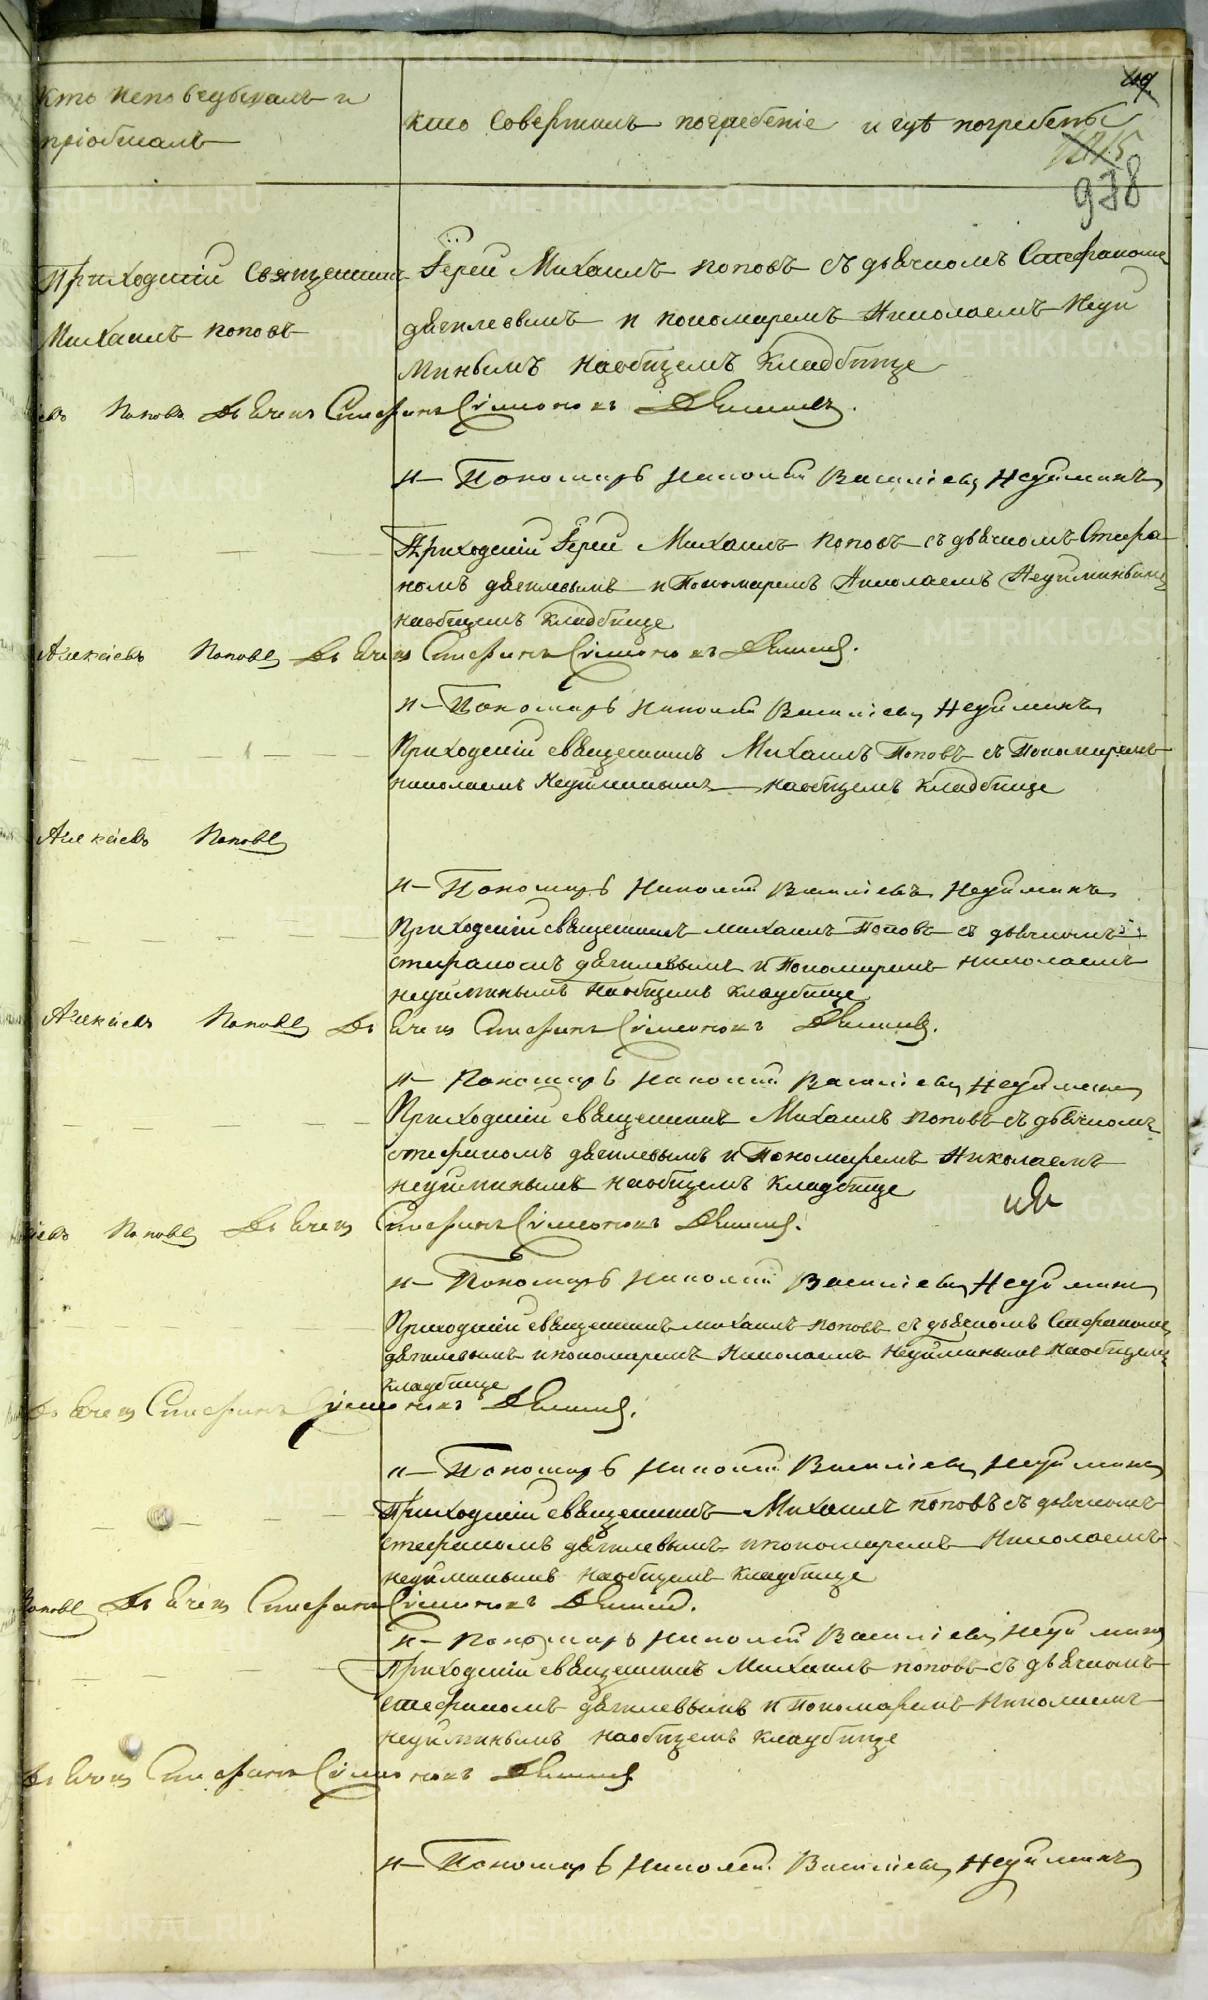 кто исповедывалъ и
пріобщалъ
кто совершалъ погребеніе и гдѣ погребены
978
Приходскій Священникъ
Михаилъ Поповъ
Іерей Михаилъ Поповъ съ дьячкомъ Стефаномъ
дягилевымъ и пономаремъ Николаемъ Неуй
минымъ наобщемъ кладбище
Поповъ Дьячекъ Стефанъ Симоновъ
и Пономарь Николай Васильевъ Неуйминъ
Приходскій Іерей Михаилъ Поповъ съ дьячкомъ Стефа
номъ дягилевымъ и Пономаремъ Николаемъ Неуйминымъ
наобщемъ кладбище
Алексѣевъ Поповъ Дьячекъ Стефанъ Симоновъ
и Пономарь Николай Васильевъ Неуйминъ
Приходскій священникъ Михаилъ Поповъ съ Пономаремъ
николаемъ Неуйминымъ наобщемъ кладбище
Алексѣевъ Поповъ
и Пономарь Николай Васильевъ Неуйминъ
Приходскій священникъ михаилъ Поповъ съ дьячкомъ
стефаномъ дягилевымъ и Пономаремъ николаемъ
неуйминымъ наобщемъ кладбище
Алексѣевъ Поповъ Дьячекъ Стефанъ Симоновъ
и Пономарь Николай Васильевъ Неуйминъ
Приходскій священникъ Михаилъ Поповъ съ дьячкомъ
стефаномъ дягилевымъ и Пономаремъ Николаемъ
неуйминымъ наобщемъ кладбище
Поповъ Дьячекъ Стефанъ Симоновъ
и Пономарь Николай Васильевъ Неуйминъ
Приходскій священникъ михаилъ поповъ съ дьячкомъ Стефаномъ
дягилевымъ и пономаремъ Николаемъ Неуйминымъ наобщемъ
кладбище
Дьячекъ Стефанъ Симоновъ
и Пономарь Николай Васильевъ Неуйминъ
Приходскій священникъ Михаилъ поповъ съ дьячкомъ
стефаномъ дягилевымъ и пономаремъ Николаемъ
неуйминымъ наобщемъ кладбище
Поповъ Дьячекъ Стефанъ Симоновъ
и Пономарь Николай Васильевъ Неуйминъ
Приходскій священникъ Михаилъ поповъ съ дьячкомъ
стефаномъ дягилевымъ и Пономаремъ Николаемъ
неуйминымъ наобщемъ кладбище
Дьячекъ Стефанъ Симоновъ
и Пономарь Николай Васильевъ Неуйминъ
METRIKI.GASO-URAL.RU